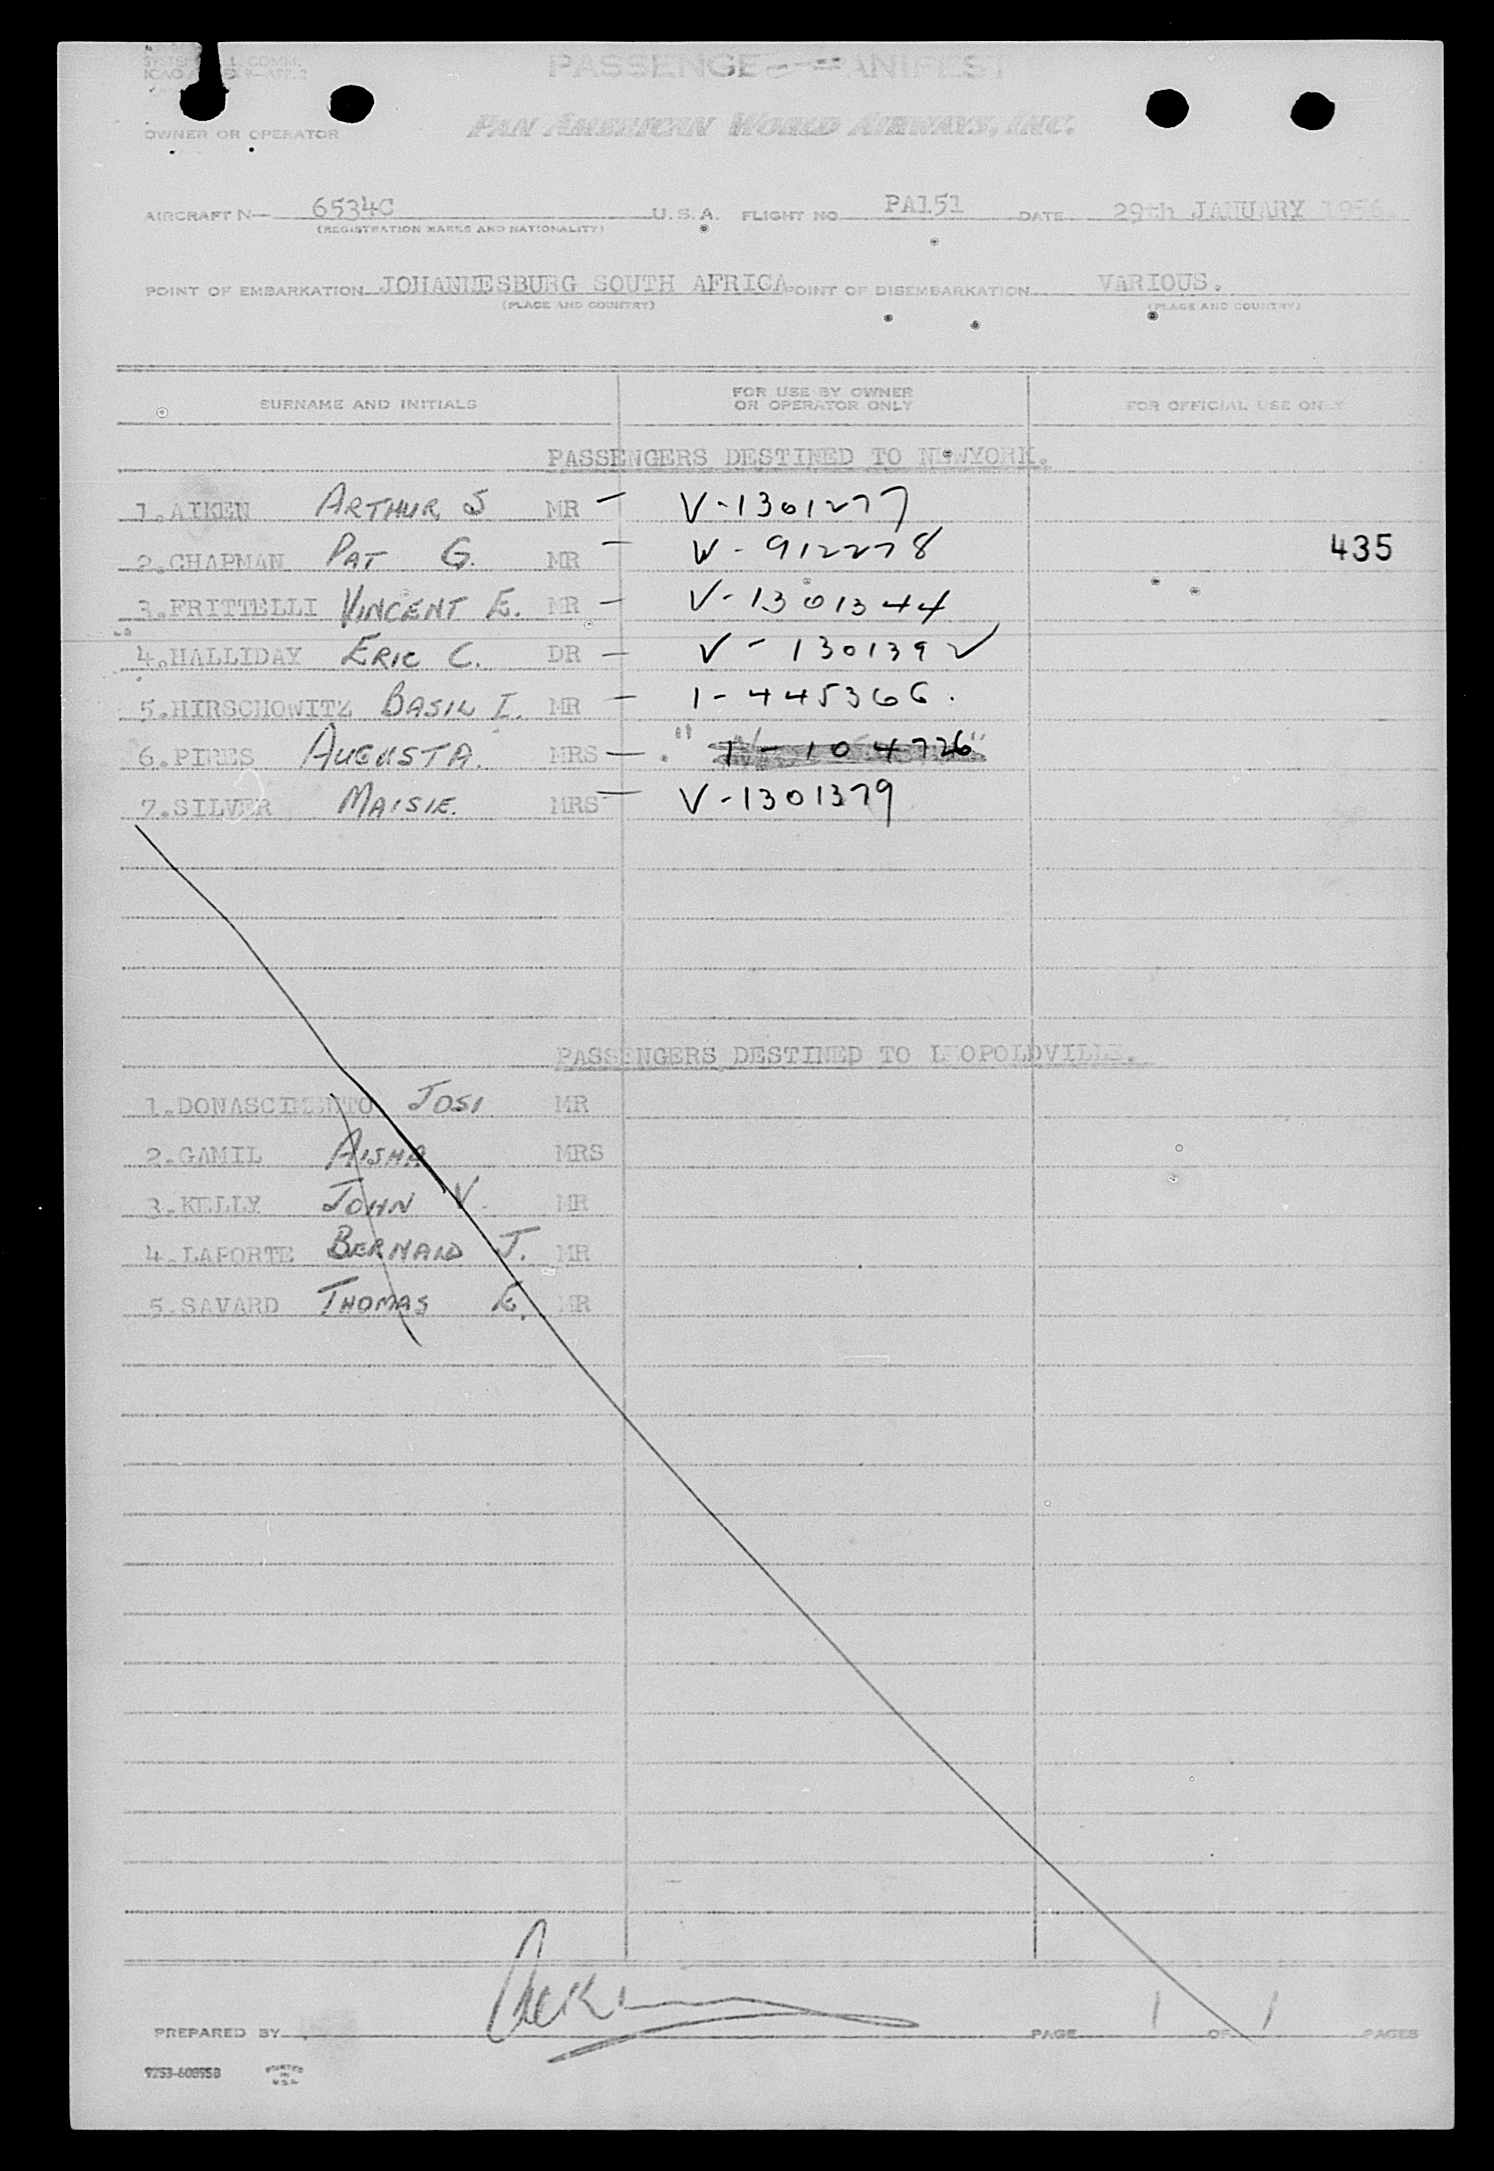 PASSENGE ANIFEST
OWNER OR OPERATOR PAN AMERICAN WORLD AIRWAYS, INC.
AIRCRAFT N— 6534C U. S. A. FLIGHT NO. PA151 DATE 29th JANUARY 1956.
(REGISTRATION MARKS AND NATIONALITY)
POINT OF EMBARKATION JOHANNESBURG SOUTH AFRICA POINT OF DISEMBARKATION VARIOUS.
(PLACE AND COUNTRY) (PLACE AND COUNTRY)
SURNAME AND INITIALS FOR USE BY OWNER OR OPERATOR ONLY FOR OFFICIAL USE ONLY
PASSENGERS DESTINED TO NEWYORK.
1.AIKEN ARTHUR S MR — V-1301277
2.CHAPMAN PAT G. MR — V-912278 435
3.FRITTELLI VINCENT E. MR — V-1301344
4.HALLIDAY ERIC C. DR — V-1301392
5.HIRSCHOWITZ BASIL I. MR — I-445366.
6.PINES AUGUSTA. MRS — " I-104726"
7.SILVER MAISIE. MRS — V-1301379
PASSENGERS DESTINED TO LEOPOLDVILLE.
1.DONASCIMENTO JOSI MR
2.GAMIL AISHA MRS
3.KELLY JOHN V. MR
4.LAPORTE BERNARD J. MR
5.SAVARD THOMAS E. MR
PREPARED BY PAGE 1 OF 1 PAGES
9253-60895B PRINTED IN U.S.A.